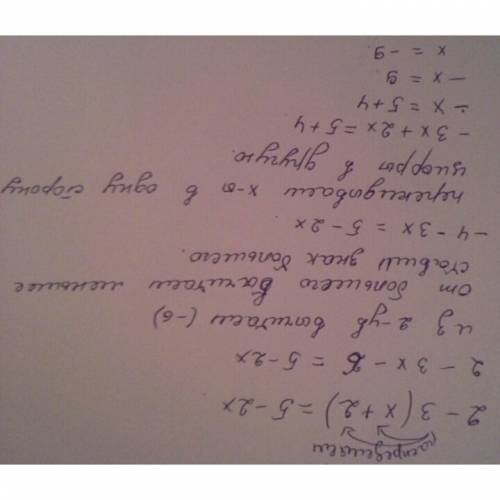 распределяем
2 - 3(x + 2) = 5 - 2x
2 - 3x - 6 = 5 - 2x
из 2-ух вычитаем (-6)
от большего вычитаем меньшее
ставим знак большего.
-4 - 3x = 5 - 2x
перекидываем x-ы в одну сторону
цифры в другую.
-3x + 2x = 5 + 4
-x = 5 + 4
-x = 9
x = -9